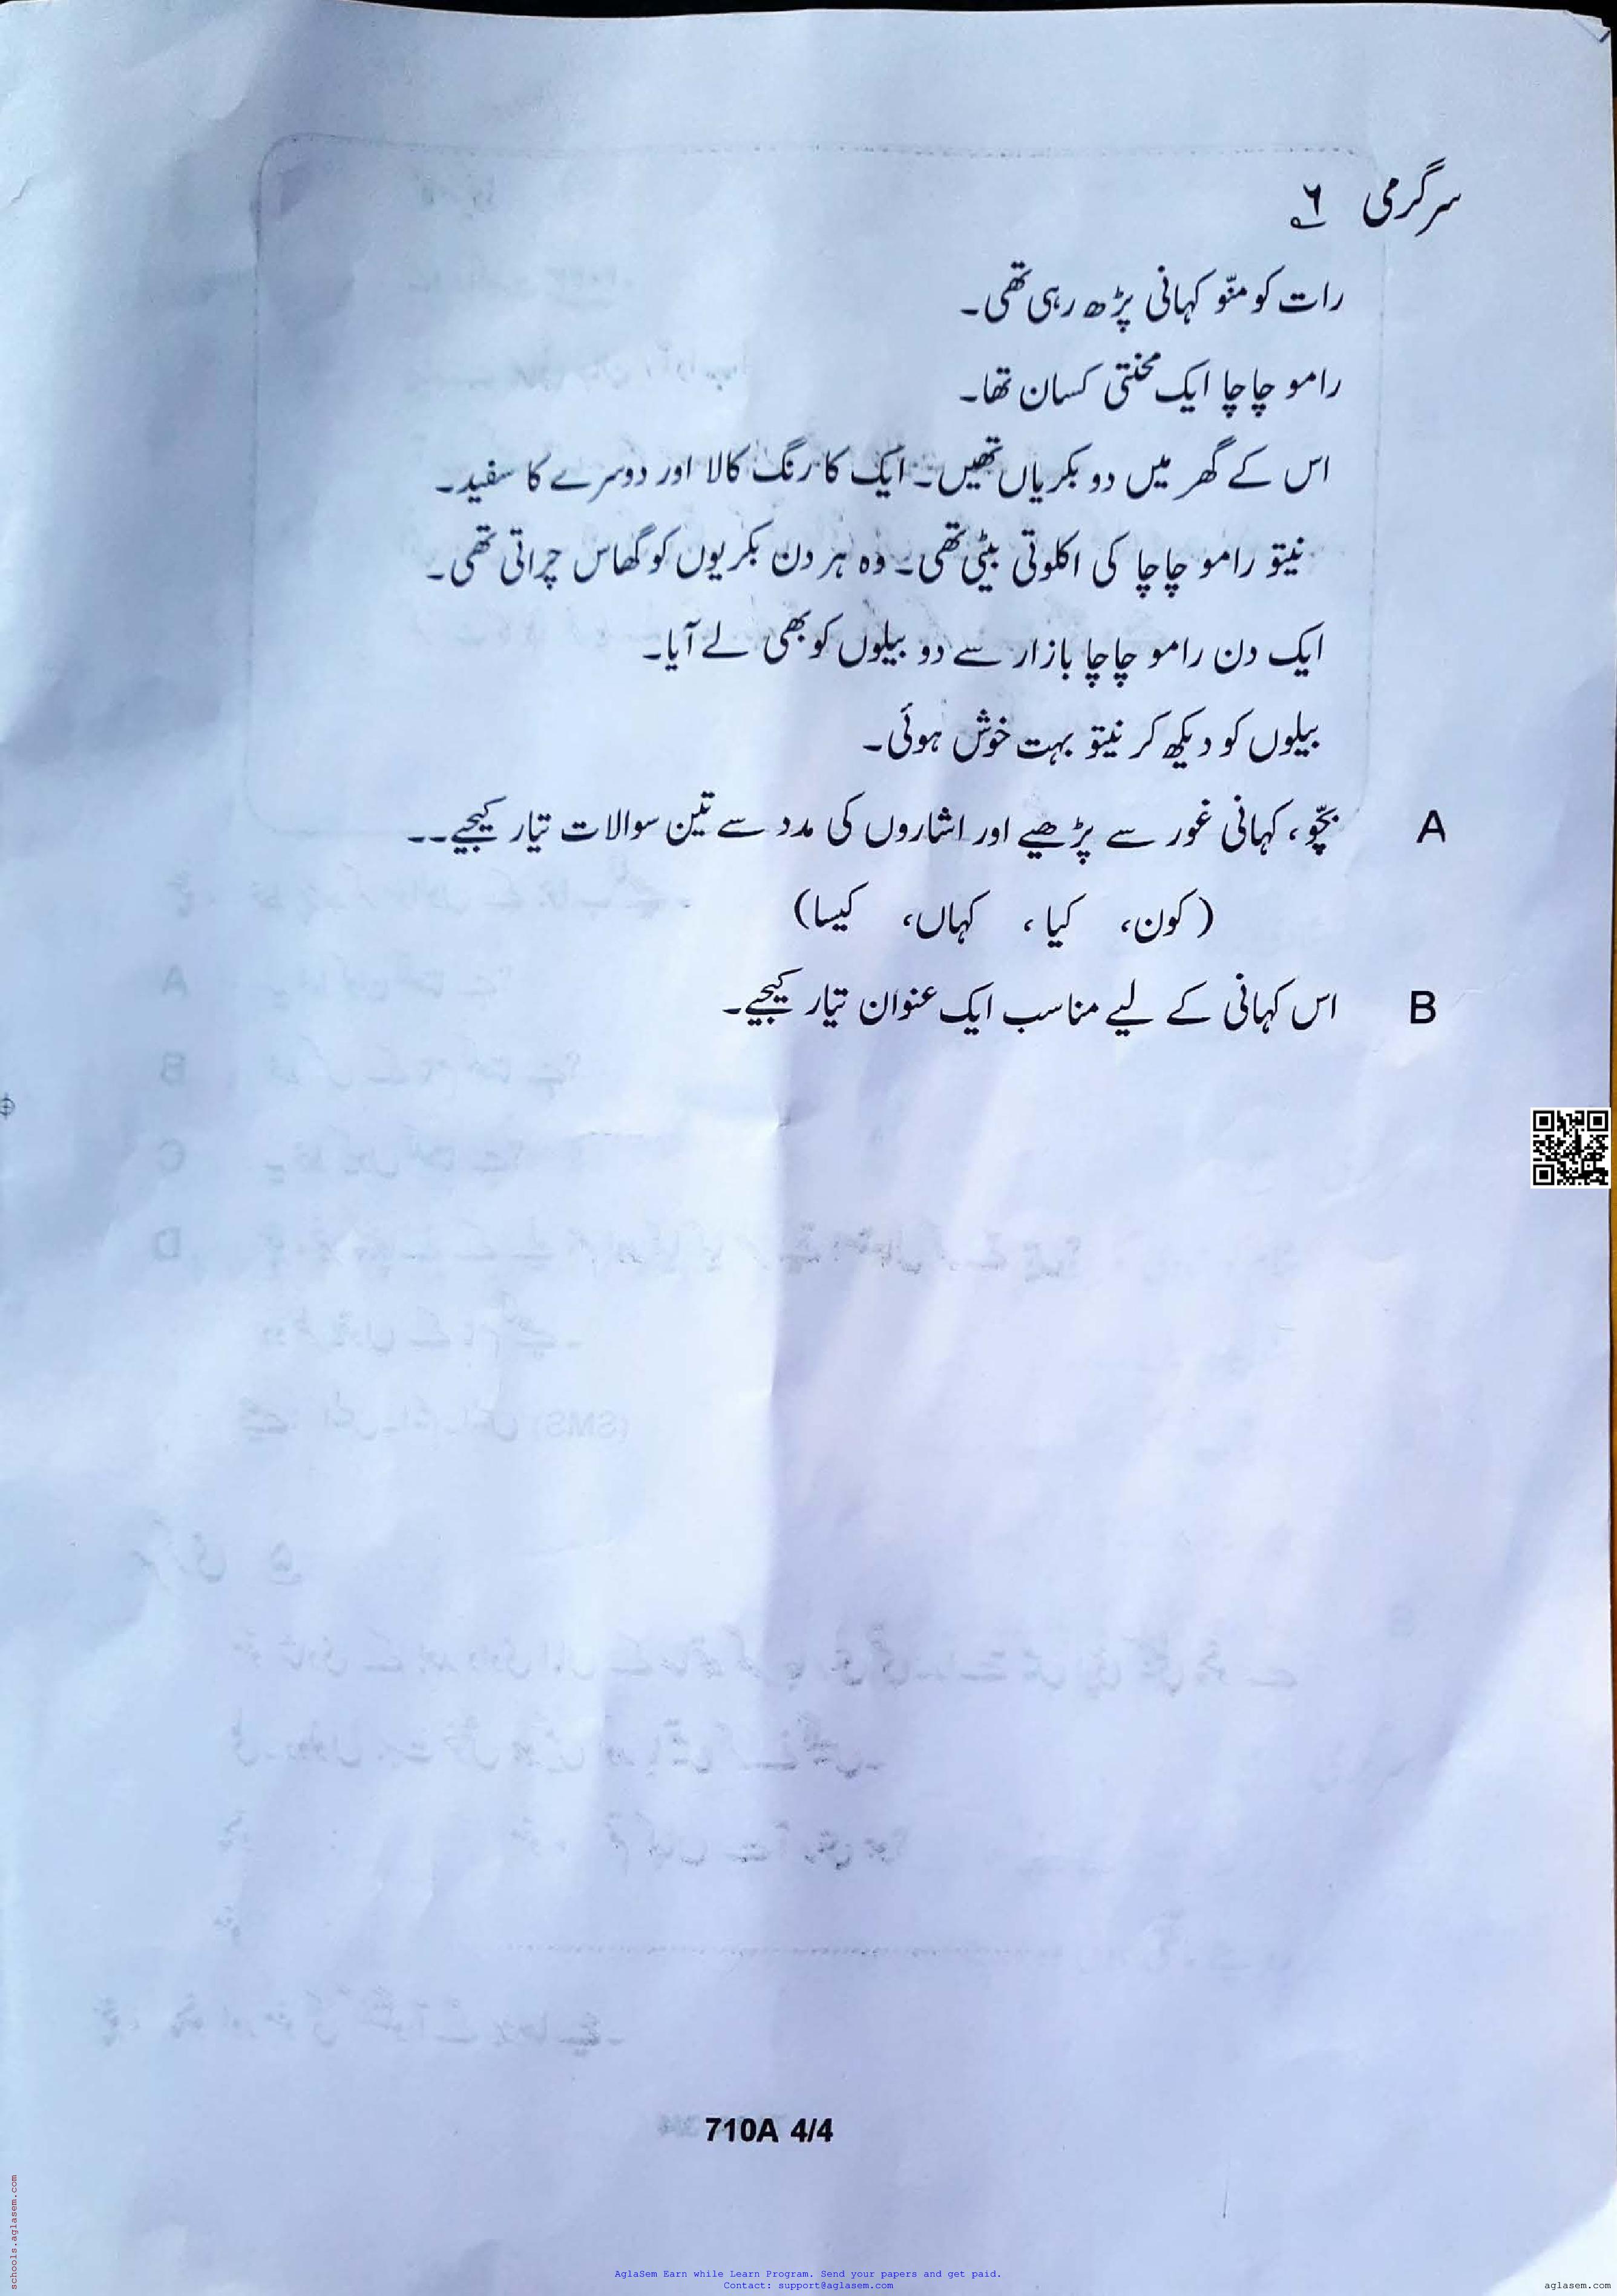 سرگرمی ٦
رات کو منّو کہانی پڑھ رہی تھی۔
رامو چاچا ایک محنتی کسان تھا۔
اس کے گھر میں دو بکریاں تھیں۔ ایک کا رنگ کالا اور دوسرے کا سفید۔
نیتو رامو چاچا کی اکلوتی بیٹی تھی۔ وہ ہر دن بکریوں کو گھاس چراتی تھی۔
ایک دن رامو چاچا بازار سے دو بیلوں کو بھی لے آیا۔
بیلوں کو دیکھ کر نیتو بہت خوش ہوئی۔
A بچّو، کہانی غور سے پڑھیے اور اشاروں کی مدد سے تین سوالات تیار کیجیے۔۔
(کون، کیا، کہاں، کیسا)
B اس کہانی کے لیے مناسب ایک عنوان تیار کیجیے۔
710A 4/4
schools.aglasem.com
AglaSem Earn while Learn Program. Send your papers and get paid.
Contact: support@aglasem.com
aglasem.com